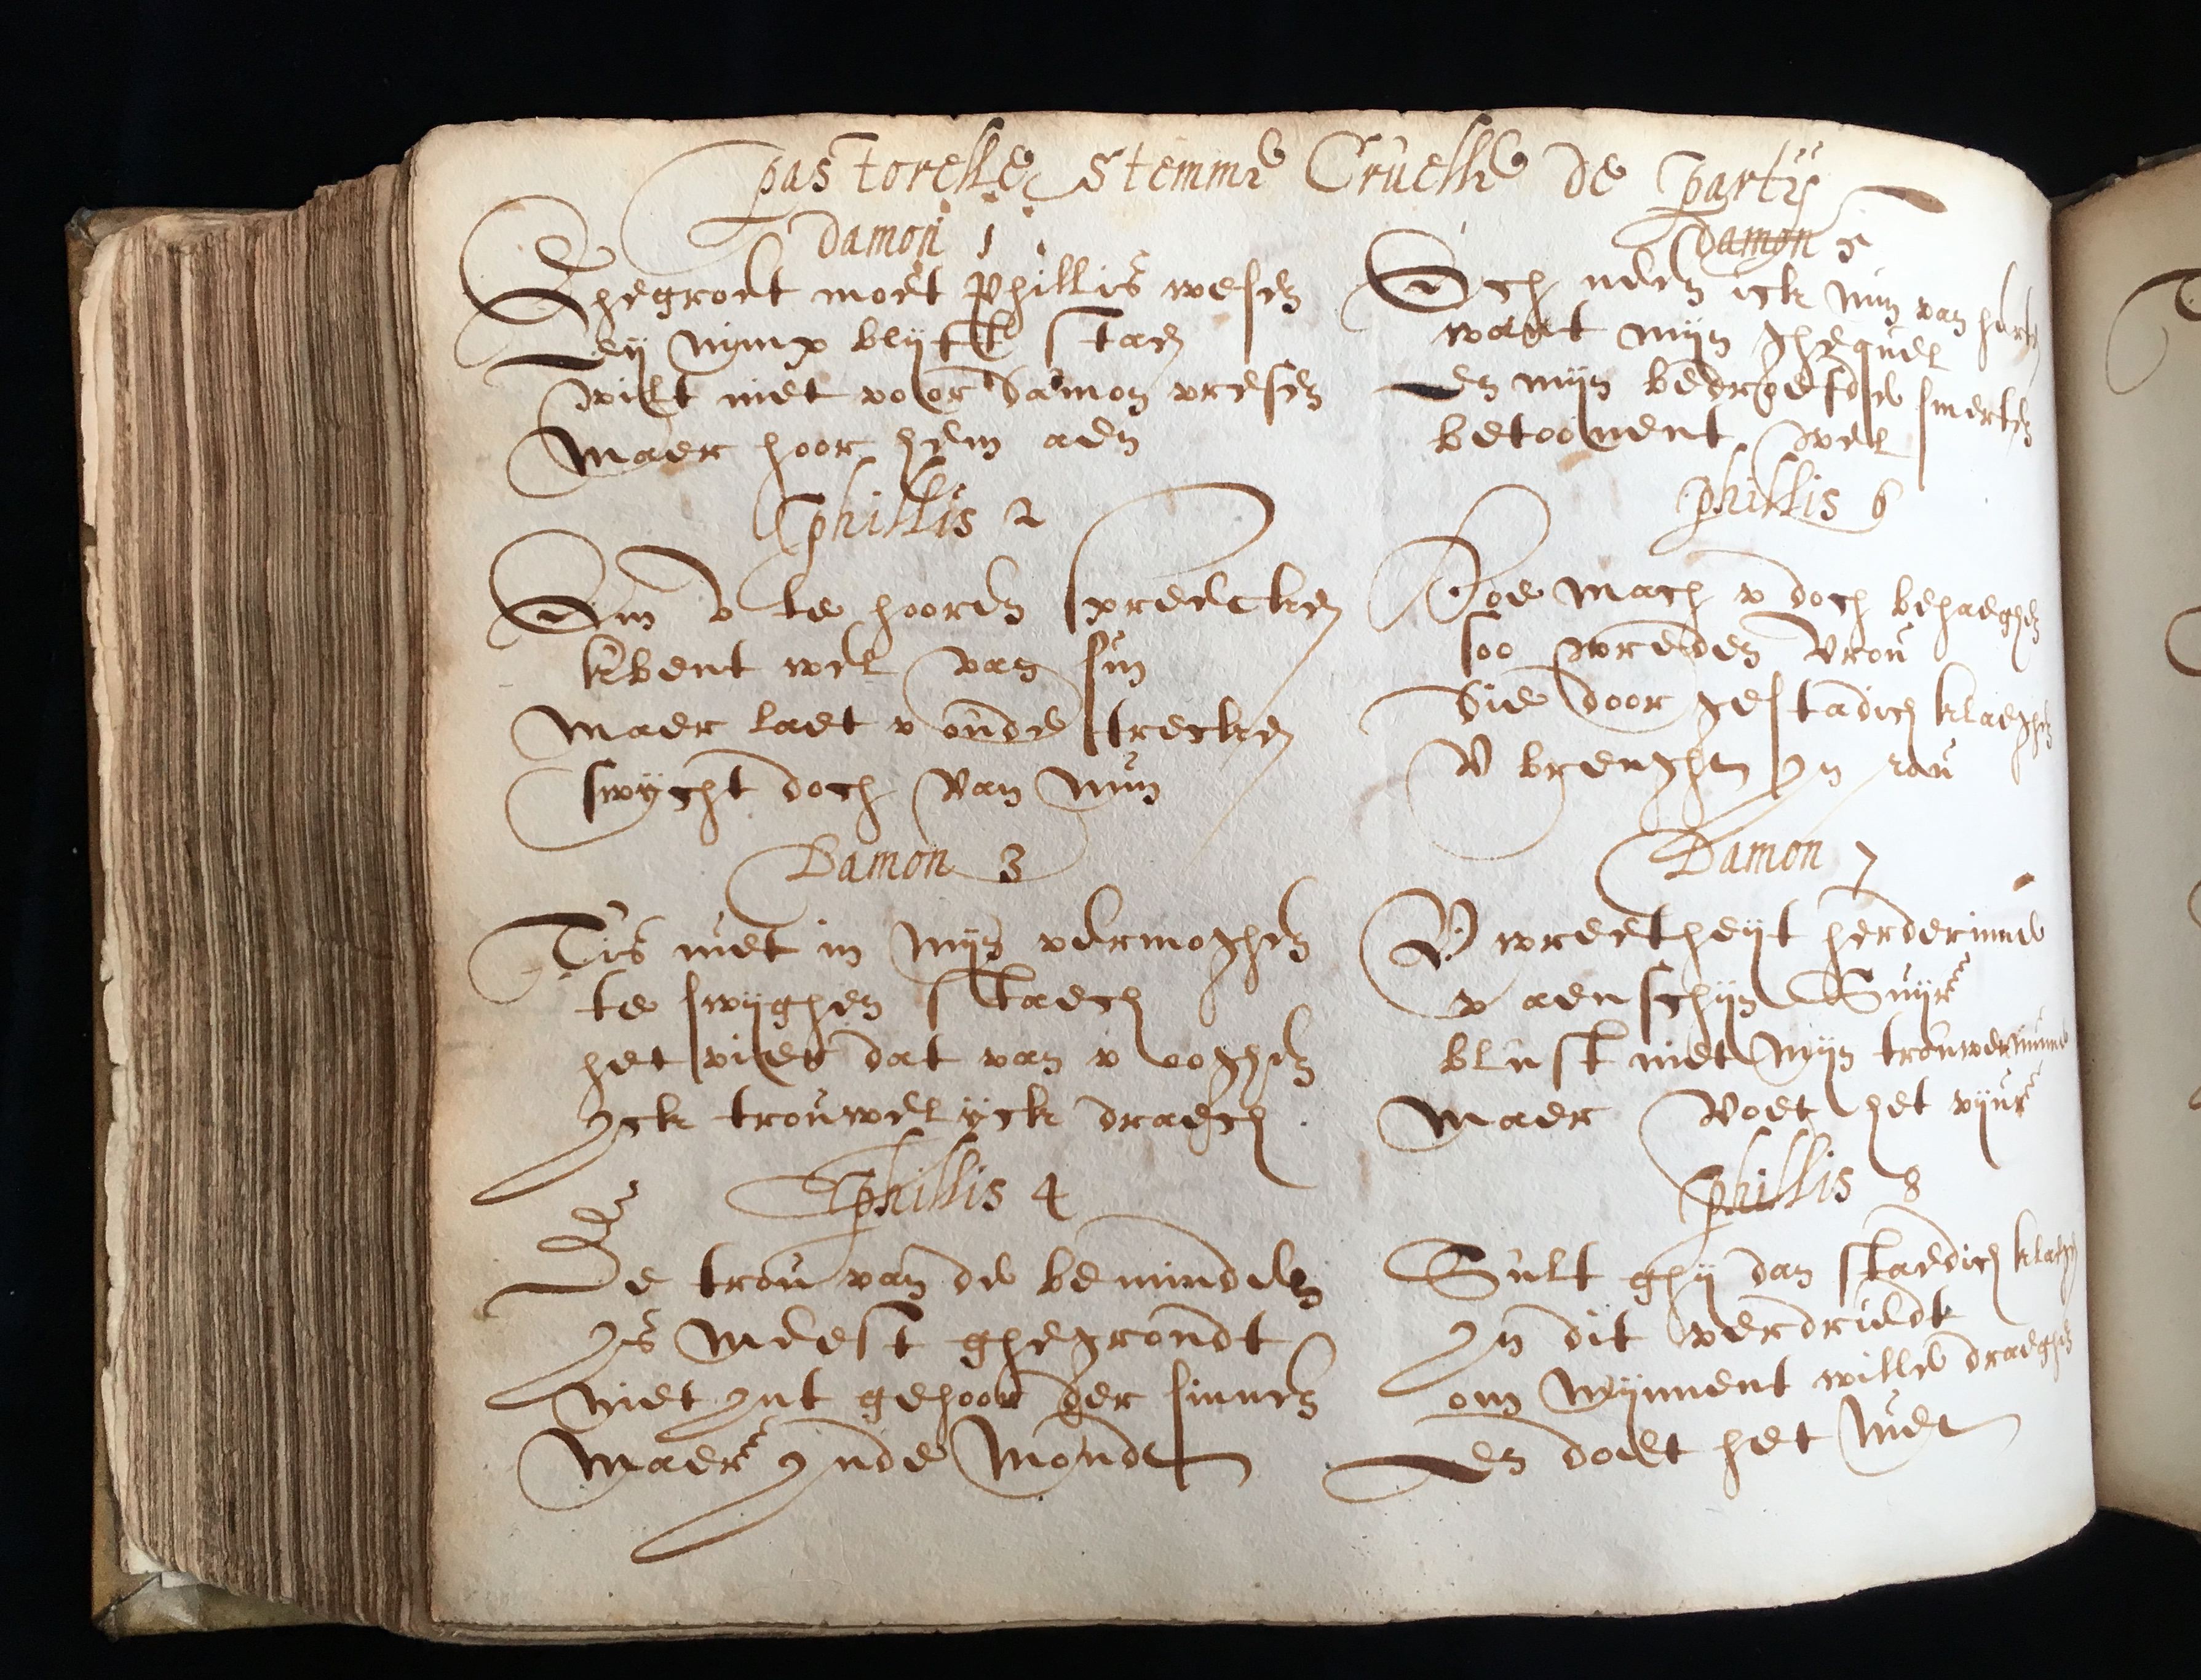 pastorelle Stemme Cruelle de partij
damon 1
Ghegroet moet Phillis wesen
Ey nimp blyft staen
wilt niet voor damon vresen
Maer hoor hem aen
phillis 2
Om v te hooren spreecken
kbent wel van sin
Maer laet v oude trecken
swycht doch van min
Damon 3
Tis niet in mijn vermoghen
te swyghen staech
het vier dat van v ooghen
Ick trouwelyck draech
Phillis 4
De trou van de beminden
Is meest ghegrondt
niet int gehoor der sinnen
Maer inde Mondt
Damon 5
Och neen ick min van herten
want mijn ghequel
En mijn bedroefde smerten
betoonent wel
phillis 6
Hoe mach v doch behaeghen
soo wreeden vrou
die door gestadich klaeghen
V brenghen in rou
Damon 7
V wreetheyt herderinne
v aenschijn Suyr
blust niet mijn trouwe minne
Maer voet het vyur
phillis 8
Sult ghy dan staedich klaghen
In dit verdriedt
om mynnent wille draeghen
En doelt het niet